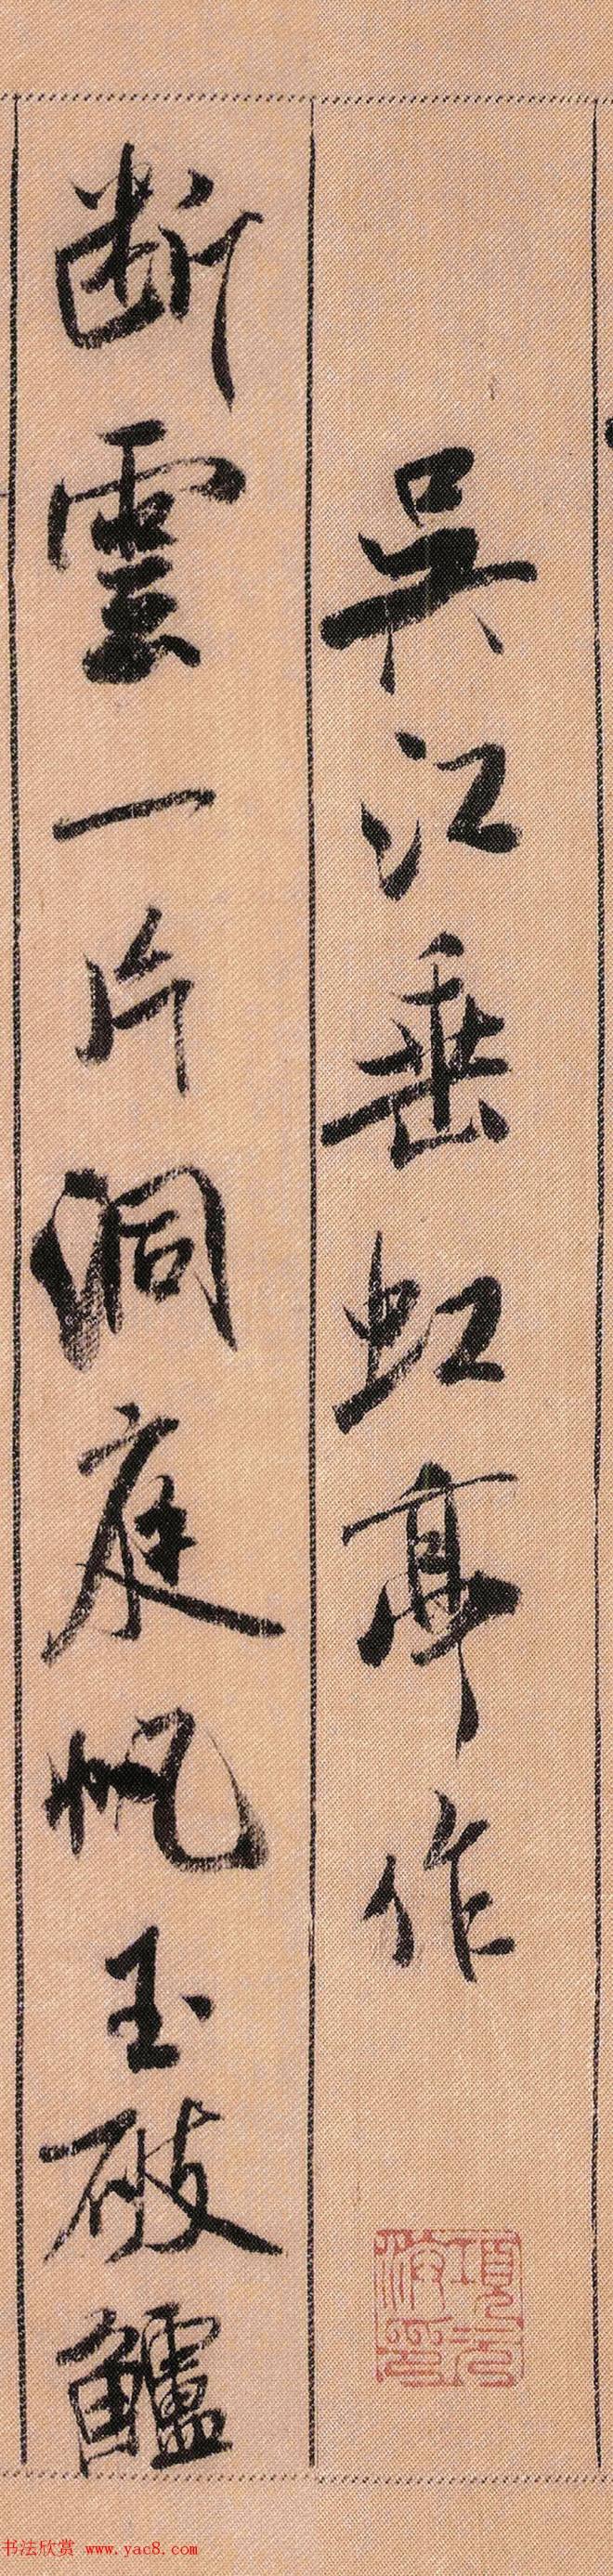 吳江垂虹亭作
斷雲一片洞庭帆玉破鱸
項元汴印
书法欣赏 www.yac8.com